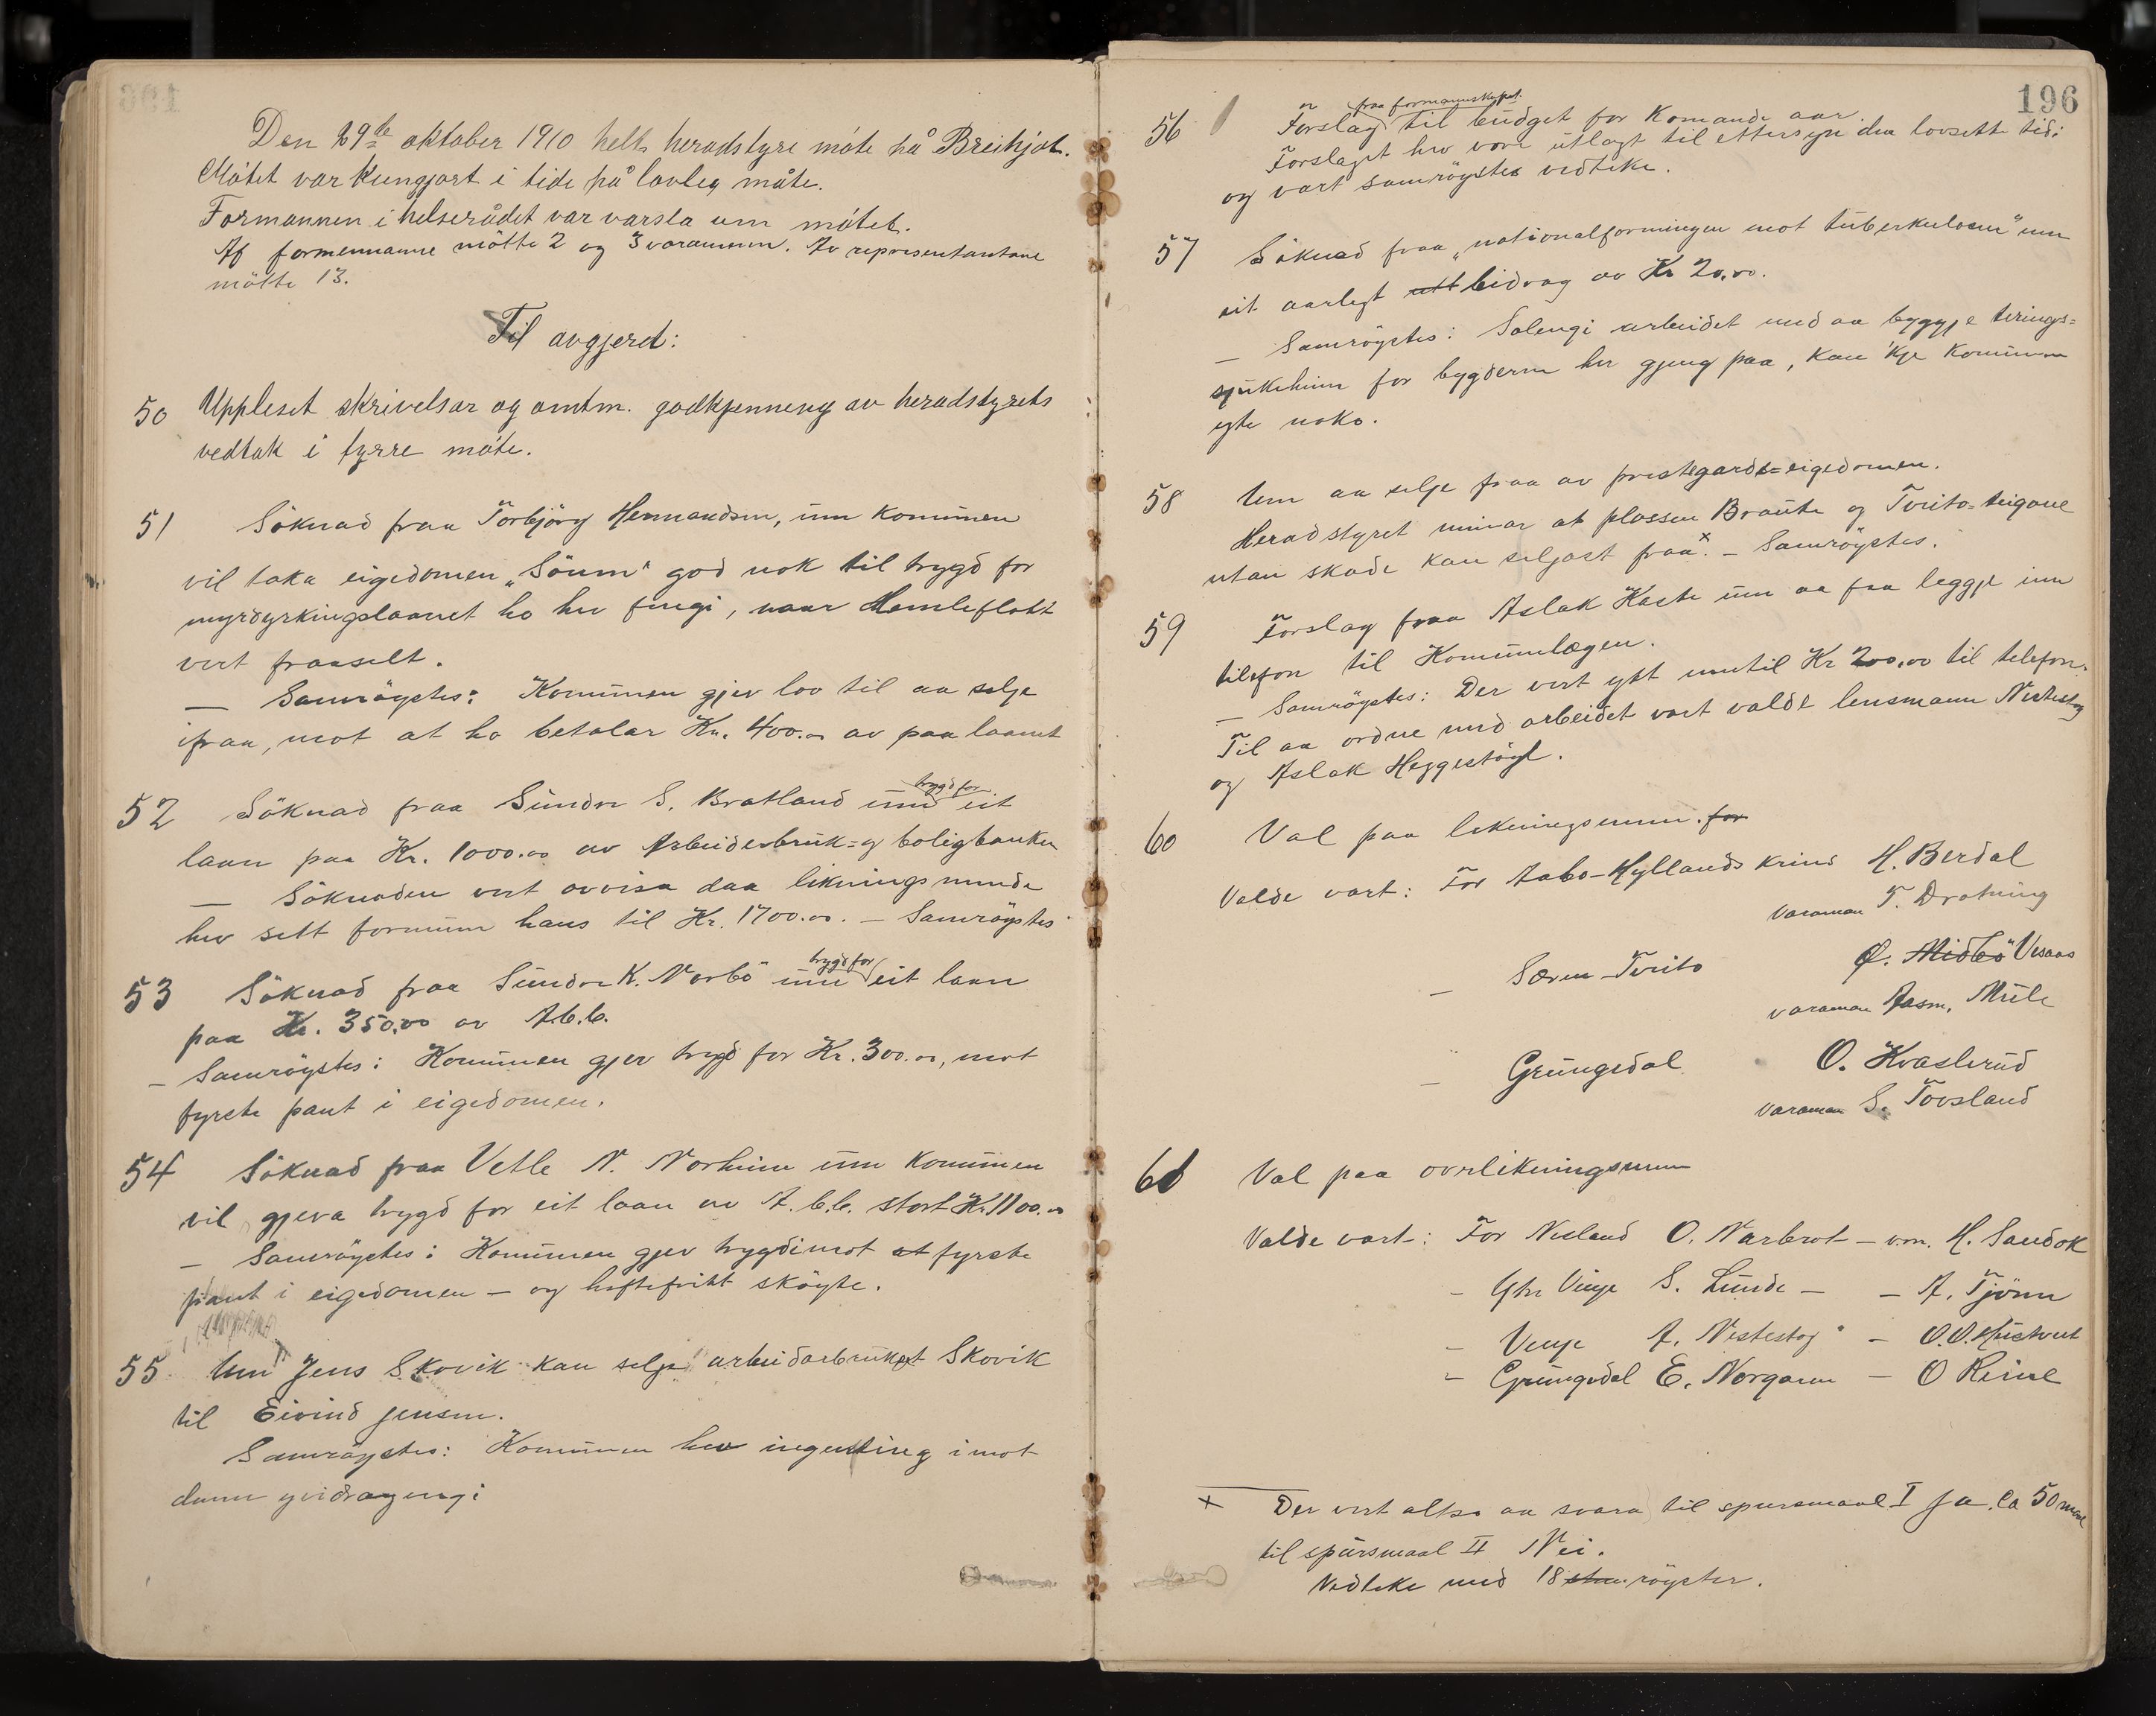 Den 29de oktober 1910 helt heradstyre møte på Breihjot.
Møtet var kungjort i tide på lovleg måte.
Formannen i helserådet var varsla um møtet.
Af formennanne mötte 2 og 3 varamenn. Av representantane
mötte 13.
Til avgjerd:
50 Uppleset skrivelsar og amtm. godkjenneng av heradstyrets
vedtak i fyrre møte.
51 Söknad fraa Torbjörg Hermandsen, um kommunen
vil taka eigedomen "Söum" god nok til trygd for
myrdyrkingslaanet ho hev fengi, naar Hemleflott
vert fraaselt.
— Samröystes: Kommunen gjev lov til aa selje
ifraa, mot at ho betalar Kr. 400.00 av paa laanet
52 Söknad fraa Sundre S. Bratland um trygd for eit
laan paa Kr. 1000.00 av Arbeiderbruk= og boligbanken
— Söknaden vert avvisa daa liknings nemnde
hev sett formuen hans til Kr. 1700.00. — Samröystes
53 Söknad fraa Sundre K. Norbö um trygd for eit laan
paa Kr. 350.00 av A.b.b.
— Samröystes: Kommunen gjev trygd for Kr. 300.00, mot
fyrste pant i eigedomen.
54 Söknad fraa Vetle N. Norheim um kommunen
vil gjeva trygd for eit laan av A.b.b. stort Kr. 1100.00
— Samröystes: Kommunen gjev trygd imot at fyrste
pant i eigedomen — og heftefritt sköyte.
55 Um Jens Skovik kan selja arbeidarbruket Skovik
til Eivind Jensen.
Samröystes: Kommunen hev ingenting imot
denne yvidragingi
196
56 Forslag fraa formannskapet til budget for komande aar.
Forslaget hev vore utlagt til ettersyn den lovsette tid
og vart samröystes vedteke.
57 Söknad fraa "nationalforeningen mot tuberkulosen" um
eit aarlegt utt bidrag av Kr 20.00.
— Samröystes: Solengi arbeidet med aa byggje tærings=
sjukeheim for bygderne her gjeng paa, kan 'kje kommunen
yte noko.
58 Um aa selje fraa av prestegards=eigedomen.
Heradstyret meinar at plassen Braute og Tveito=teigane
utan skade kan seljast fraa x. — Samröystes.
59 Forslag fraa Aslak Haste um aa faa leggje inn
telefon til Kommunelægen.
— Samröystes: Der vert ytt inntil Kr 200.00 til telefon.
Til aa ordne med arbeidet vart valde lensmann Nestestog
og Aslak Heggestöyl.
60 Val paa likningsmenn. for
Valde vart: For Aabo-Hyllands krins H. Berdal
varaman T. Drotning
— Særen-Tveito Ø. Midbö Vesaas
varaman Aasm. Mule
— Grungedal O. Kvaslerud
varaman S. Tovsland
61 Val paa overlikningsmenn
Valde vart: For Nesland O. Narbrot — v.m. H. Sandok
— Ytre Vinje S. Lunde — — A. Tjönn
— Vinje A. Nestestog — O.O. Hustveit
— Grungedal E. Norgaren — O Reine
x Der vert altso aa svara til spursmaal I Ja. Ca 50 maal
til spursmaal II Nei.
Vedteke med 18 stm. röyster.